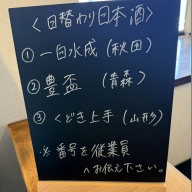 〈日替わり日本酒〉
① 一白水成（秋田）
② 豊盃（青森）
③ くどき上手（山形）
※ 番号を従業員
へお伝え下さい。